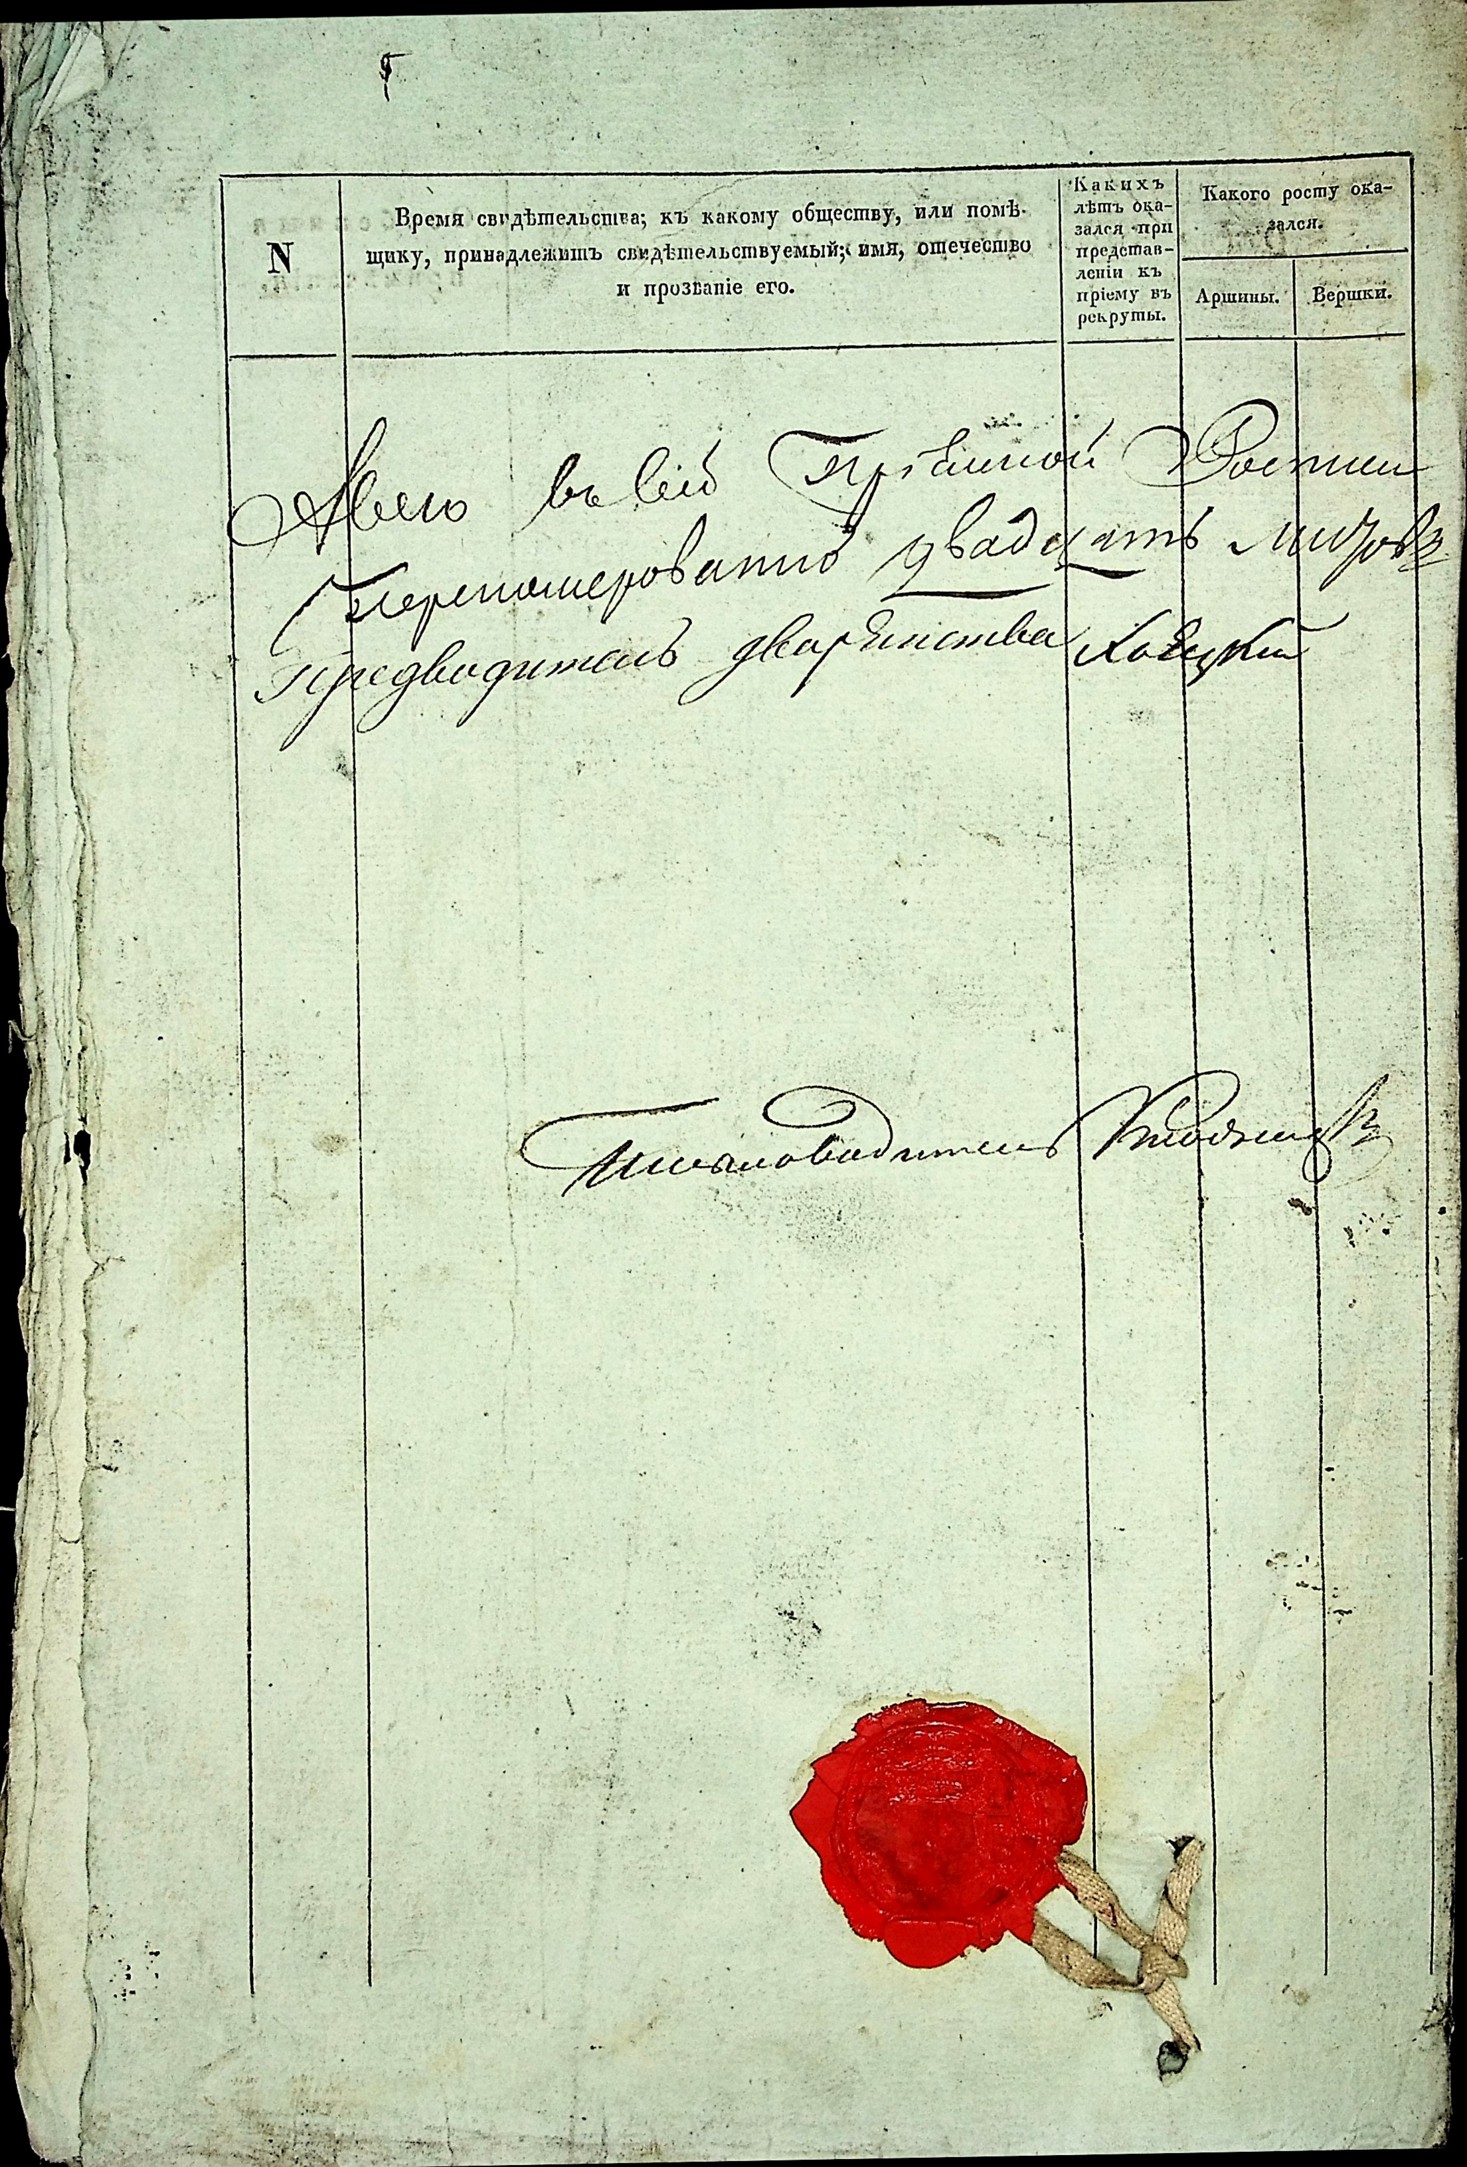 N
Время свидѣтельства; къ какому обществу, или помѣ-
щику, принадлежитъ свидѣтельствуемый; имя, отечество
и прозваніе его.
Какихъ
лѣтъ ока-
зался при
представ-
леніи къ
пріему въ
рекруты.
Какого росту ока-
зался.
Аршины.
Вершки.
Авсего въ сей Пріемной Росписи
Перенумеровано двадцать листовъ
Предводитель дворянства
Письмоводитель